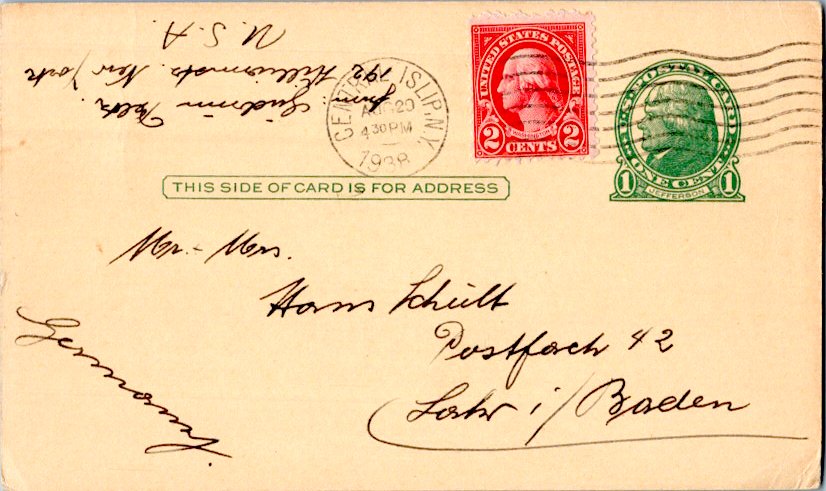 U. S. A.
192 New York
from Gudrun
CENTRAL ISLIP, N.Y.
20
4 30 PM
1938
UNITED STATES POSTAGE
WASHINGTON
2 CENTS 2
U.S. POSTAL CARD
ONE CENT
1 JEFFERSON 1
THIS SIDE OF CARD IS FOR ADDRESS
Mr. - Mrs.
Hans Schült
Postfach 42
Lahr i/Baden
Germany.